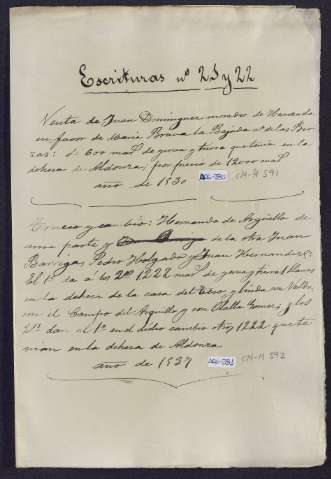 Escrituras nº 21 y 22
Venta de Juan Dominguez morador de
en favor de Maria Brava la
: de 600 mas de yerva y tierra que tenia en la
dehesa de Aldonza, por precio de 12000 mas
año de 1530 CM-H 591
Trueco y cambio: Hernando de Argüello de
una parte y de la otra Juan
Barriga, Pedro Holgado y Juan Hernandez:
El 1º da á los 2os 1222 mas de yerva
en la dehesa de la casa del y linda con
con el Campo del Arquillo y con y los
2os dan al 1º en dicho cambio los 1222 que te
nian en la dehesa de Aldonza
año de 1537 CM-H 592